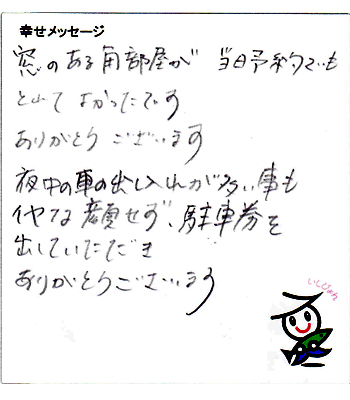 幸せメッセージ
窓のある角部屋が 当日予約でも
とれて よかったです
ありがとう ございます
夜中の車の出し入れが多い事も
イヤな顔せず、駐車券を
出していただき
ありがとうございます